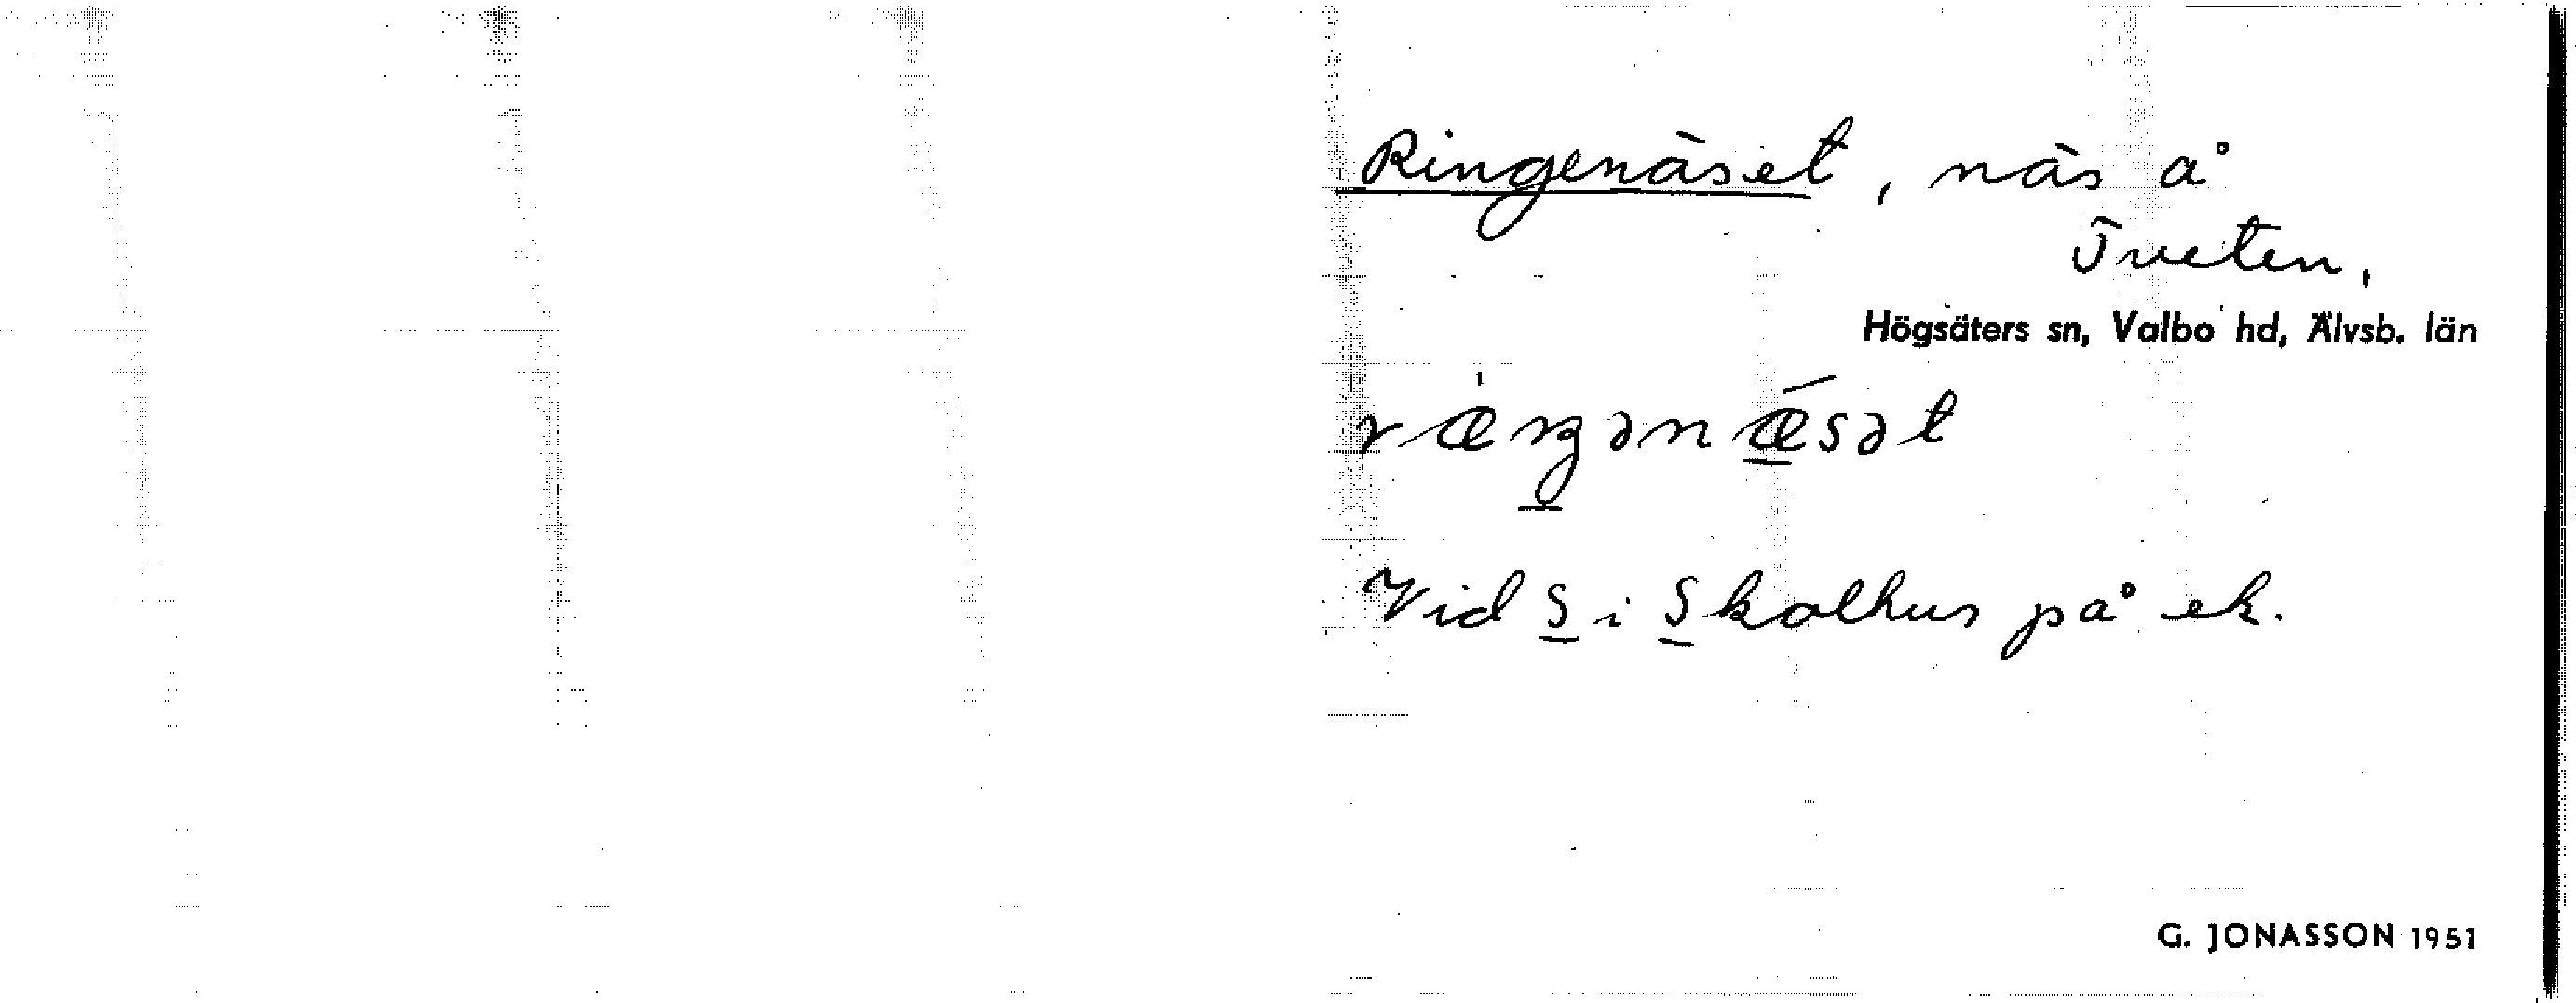 Ringenäset, näs å
Tveten,
Högsäters sn, Valbo hd, Älvsb. län
ræŋənæ̲sət
Vid S i Skolhus på ek.
G. JONASSON 1951